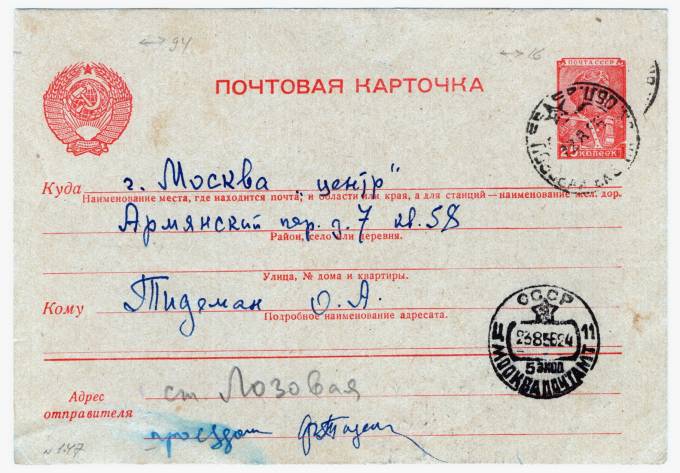 94
16
ПОЧТОВАЯ КАРТОЧКА
ПОЧТА СССР
КОПЕЕК
Куда г. Москва „центр"
Наименование места, где находится почта, и области или края, а для станций—наименование жел. дор.
Армянский пер. д. 7 кв. 58
Район, село или деревня.
Улица, № дома и квартиры.
Кому Тидеман О. А.
Подробное наименование адресата.
СССР
11
5 ЭКСП
МОСКВА ПОЧТАМТ
Адрес отправителя
ст Лозовая
проездом
N 147